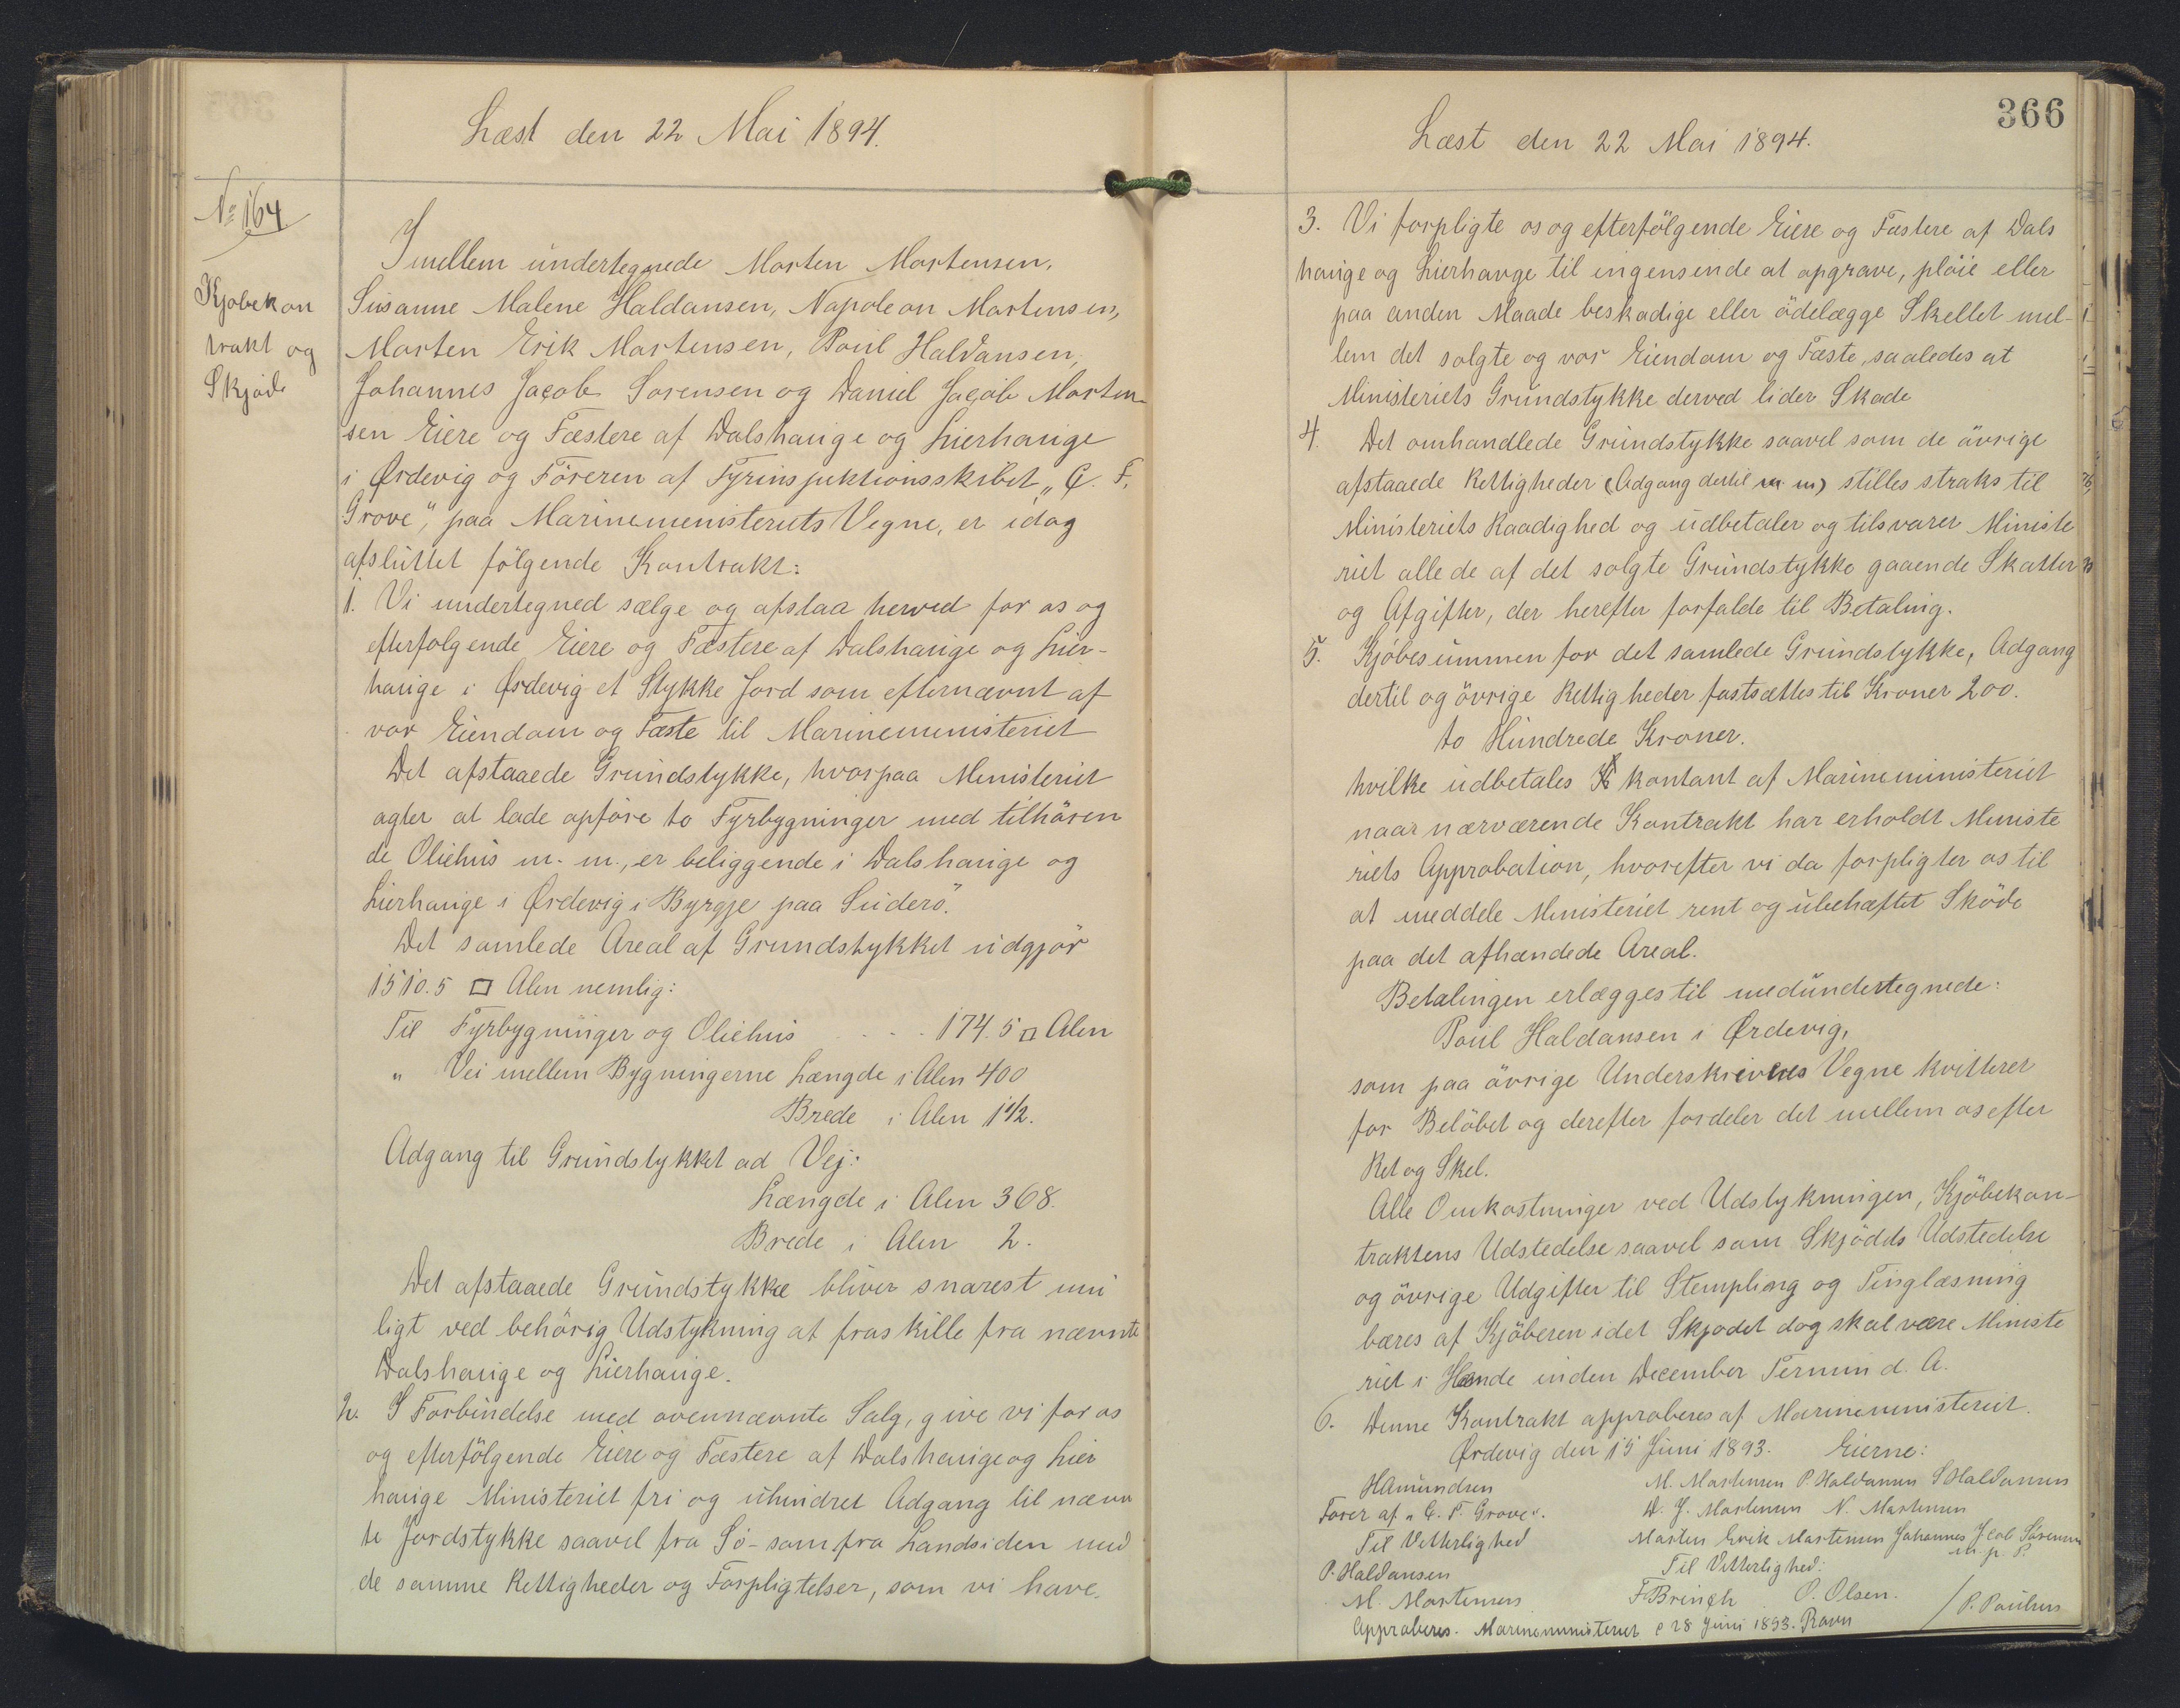 Læst den 22 Mai 1894.
№ 164
Kjøbekon
trakt og
Skjøde
Imellem undertegnede Morten Mortensen,
Susanne Malene Haldansen, Napoleon Mortensen,
Morten Erik Mortensen, Poul Haldansen,
Johannes Jacob Sørensen og Daniel Jacob Morten-
sen Eiere og Fæstere af Dalshauge og Lierhauge
i Ørdevig og Föreren af Fyrinspektionsskibet "G. F.
Grove", paa Marineministeriets Vegne, er idag
afsluttet fölgende Kontrakt:
1. Vi undertegned sælge og afstaa herved for os og
efterfolgende Eiere og Fæstere af Dalshauge og Lier-
hauge i Ørdevig et Stykke Jord som efternævnt af
vor Eiendom og Fæste til Marineministeriet
Det afstaaede Grundstykke, hvorpaa Ministeriet
agter at lade opföre to Fyrbygninger med tilhören
de Oliehus m. m., er beliggende i Dalshauge og
Lierhauge i Ørdevig i Byrgje paa Suderö.
Det samlede Areal af Grundstykket udgjör
1510.5 □ Alen nemlig:
Til Fyrbygninger og Oliehus . . . 174.5 □ Alen
" Vei mellem Bygningerne Længde i Alen 400
Brede i Alen 1 1/2.
Adgang til Grundstykket ad Vej:
Længde i Alen 368.
Brede i Alen 2.
Det afstaaede Grundstykke bliver snarest mu
ligt ved behörig Udstykning at fraskille fra nævnte
Dalshauge og Lierhauge.
2. I Forbindelse med ovennævnte Salg, give vi for os
og efterfölgende Eiere og Fæstere af Dalshauge og Lier
hauge Ministeriet fri og uhindret Adgang til nævn
te Jordstykke saavel fra Sö- som fra Landsiden med
de samme Rettigheder og Forpligtelser, som vi have.
366
Læst den 22 Mai 1894.
3. Vi forpligte os og efterfölgende Eiere og Fæstere af Dals
hauge og Lierhauge til ingensende at opgrave, plöie eller
paa anden Maade beskadige eller ödelægge Skellet mel-
lem det solgte og vor Eiendom og Fæste, saaledes at
Ministeriets Grundstykke derved lider Skade
4. Det omhandlede Grundstykke saavel som de övrige
afstaaede Rettigheder (Adgang dertil m. m) stilles straks til
Ministeriets Raadighed og udbetaler og tilsvarer Ministe
riet alle de af det solgte Grundstykke gaaende Skatter
og Afgifter, der herefter forfalde til Betaling.
5. Kjöbesummen for det samlede Grundstykke, Adgang
dertil og övrige Rettigheder fastsættes til Kroner 200.
to Hundrede Kroner.
hvilke udbetales kontant af Marineministeriet
naar nærværende Kontrakt har erholdt Ministe
riets Approbation, hvorefter vi da forpligter os til
at meddele Ministeriet rent og ubehæftet Sköde
paa det afhændede Areal.
Betalingen erlægges til medundertegnede:
Poul Haldansen i Ørdevig,
som paa övrige Underskrivernes Vegne kvitterer
for Belöbet og derefter fordeler det mellem os efter
Ret og Skel.
Alle Omkostninger ved Udstykningen, Kjöbekon-
traktens Udstedelse saavel som Skjödds Udstedelse
og övrige Udgifter til Stempling og Tinglæsning
bæres af Kjöberen idet Skjødet dog skal være Ministe
riet i Hænde inden December Termin d. A.
6. Denne Kontrakt approberes af Marineministeriet.
Ørdevig den 15 Juni 1893. Eierne:
HAmundsen M. Mortensen P. Haldansen S Haldansen
Fører af "G. F. Grove". D. J. Mortensen N. Mortensen
Til Vitterlighed Morten Erik Mortensen Johannes Jacob Sørensen
m. p. P.
P. Haldansen Til Vitterlighed:
M. Mortensen F. Bringh O. Olsen. / P. Poulsen
Approberes. Marineministeriet d 28 Juni 1893. Ravn